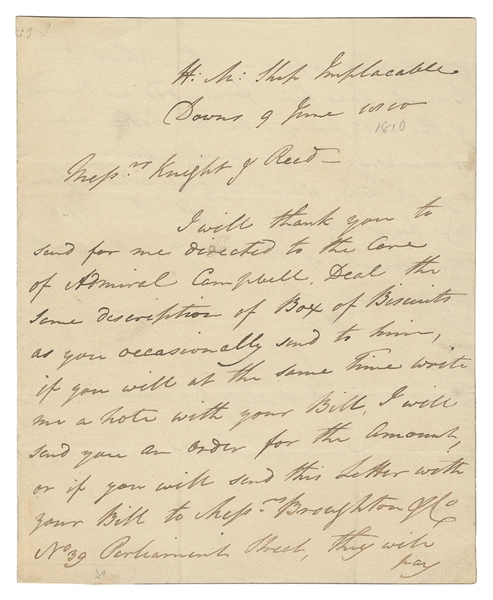 H: M: Ship Implacable
Downs 9 June 1810
1810
Messrs Knight & Reed —
I will thank you to
send for me directed to the Care
of Admiral Campbell, Deal the
same description of Box of Biscuits
as you occasionally send to him,
if you will at the same Time write
me a note with your Bill, I will
send you an order for the amount,
or if you will send this Letter with
your Bill to Messrs Broughton & Co
No 39 Parliament Street, they will
pay